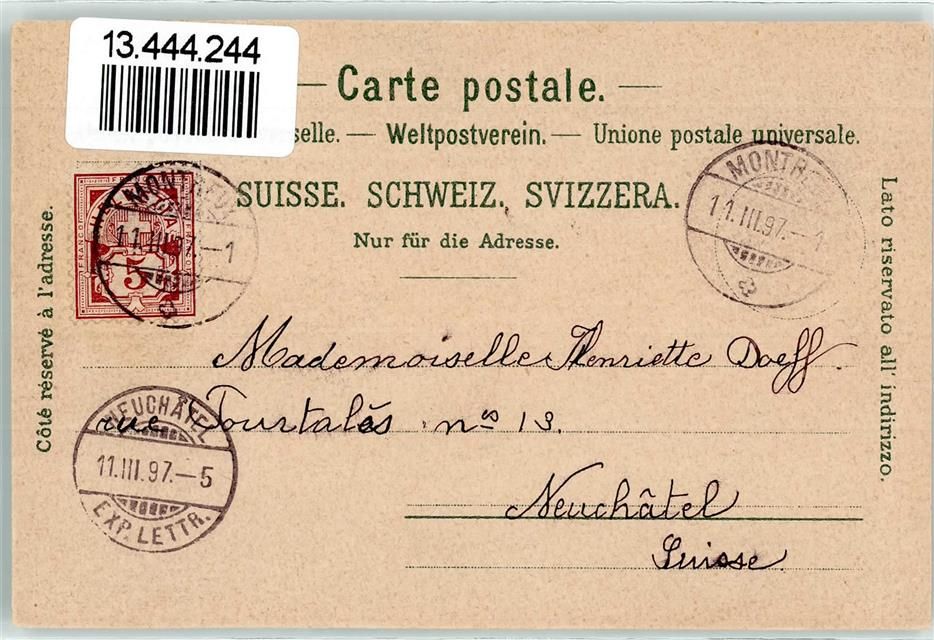 13.444.244
Carte postale.
selle. — Weltpostverein. — Unione postale universale.
SUISSE. SCHWEIZ. SVIZZERA.
Nur für die Adresse.
Côté réservé à l'adresse.
Lato riservato all' indirizzo.
FRANCO
5
11.III.97.–1
MONTR
11.III.97.–1
Mademoiselle Henriette Doeff
rue Pourtalès nos 13.
Neuchâtel
Suisse
NEUCHÂTEL
11.III.97.–5
EXP. LETTR.